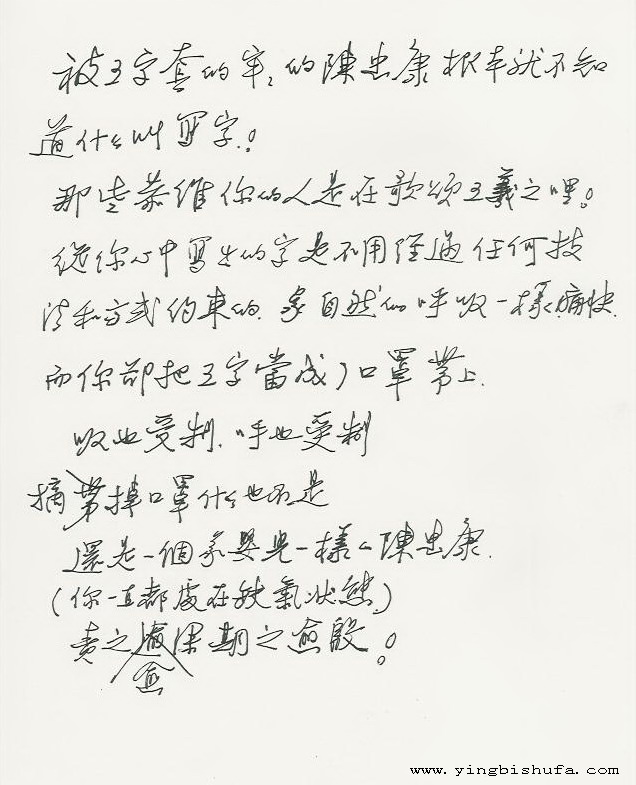 被王字套的牢牢的陳忠康根本就不知
道什么叫罗字。
那些恭維你的人是在歌頌主義之哩。
從你心中寫出的字是不用經過任何技
法和方式約束的.象自然的呼吸一樣.痛快.
而你卻把王字當成了口罩带上.
吸也受制.呼也受制
摘带掉口罩什么也不是
還是一個象嬰兒一樣的陳忠康.
(你一直都處在缺氣狀態)
责之深期之愈殷。
愈
www.yingbishufa.com